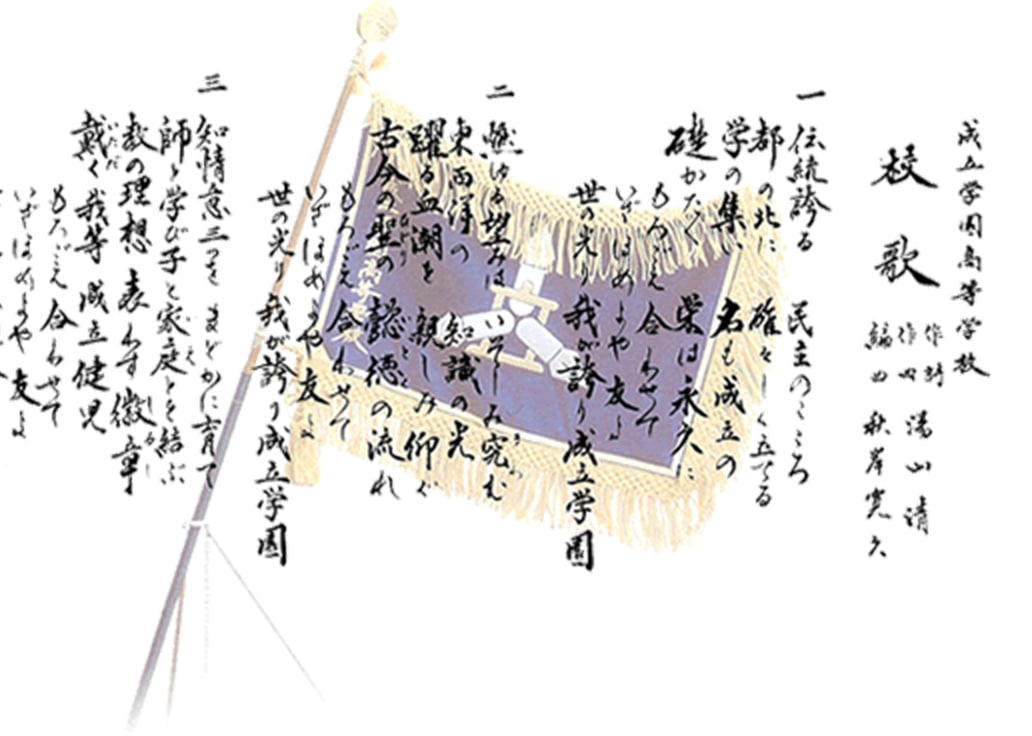 成立学園高等学校
校歌
作詩 湯山 清
作曲
編曲 秋岸寛久
一
伝統誇る 民主のこころ
都の北に 確々しく立てる
学の集い 名も成立の
礎かたく 栄は永久に
もろごえ合わせて
いざほめようや友よ
世の光り 我が誇り成立学園
二
聴ける望みは いそしみ究む
東西洋の 知識の光
躍る血潮を 親しみ仰ぐ
古今の聖の 懿徳の流れ
もろごえ合わせて
いざほめようや友よ
世の光り 我が誇り成立学園
三
知情意三つを まどかに育て
師と学び子と家庭とを結ぶ
教の理想 表わす徽章
戴く我等 成立健児
もろごえ合わせて
いざほめようや友よ